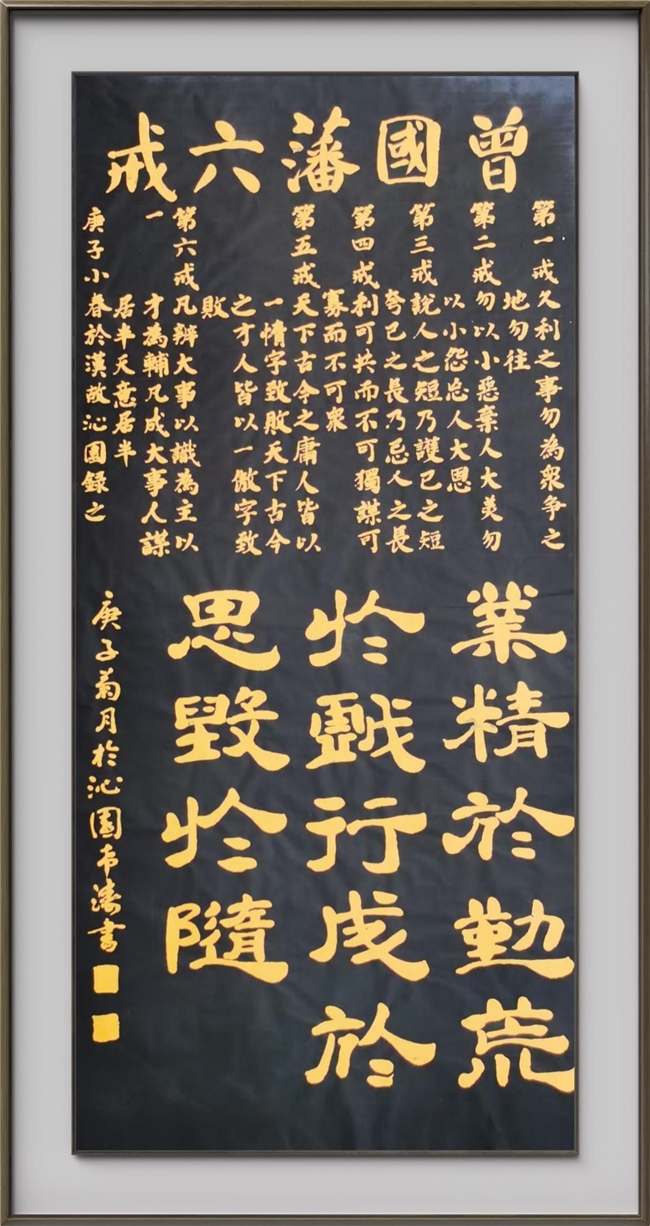 曾國藩六戒
第一戒久利之事勿為衆争之
地勿往
第二戒勿以小惡棄人大美勿
以小怨忘人大恩
第三戒說人之短乃護己之短
夸己之長乃忌人之長
第四戒利可共而不可獨謀可
寡而不可衆
第五戒天下古今之庸人皆以
一惰字致敗天下古今
之才人皆以一傲字致
敗
第六戒凡辨大事以識為主以
一才為輔凡成大事人謀
居半天意居半
庚子小春於漢故沁園錄之
業精於勤荒
於戲行成於
思毀於隨
庚子菊月於沁園濤書